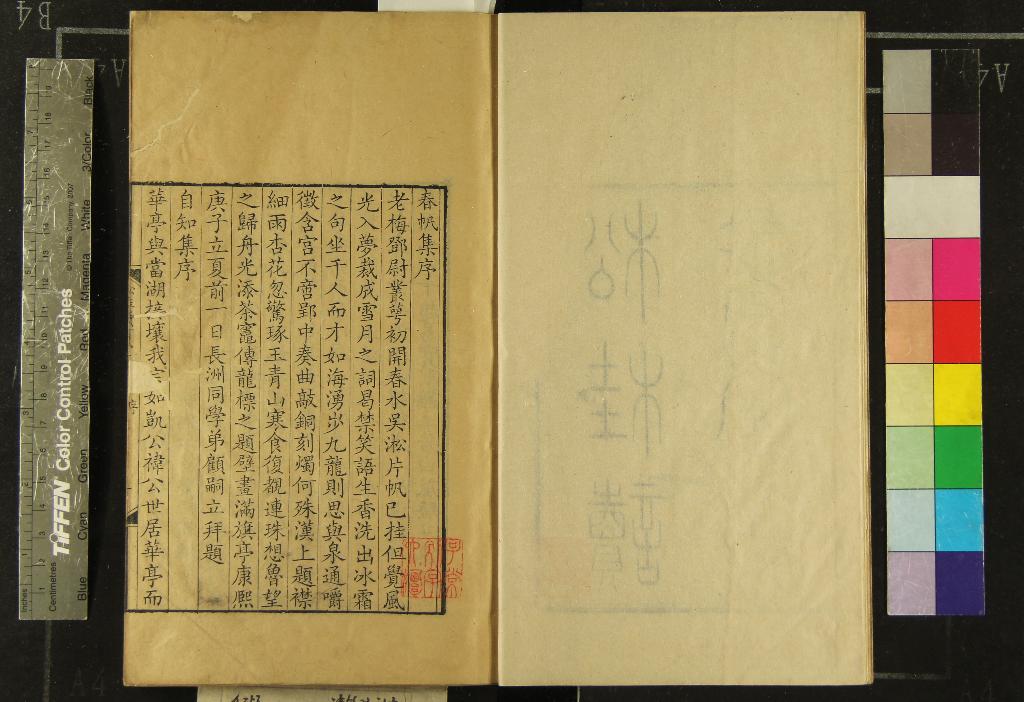 春帆集序
老梅鄧尉叢萼初開春水吳淞片帆已挂但覺風
光入夢裁成雪月之詞曷禁笑語生香洗出冰霜
之句坐千人而才如海湧歩九龍則思與泉通嚼
徵含宮不啻郢中奏曲敲銅刻燭何殊漢上題襟
細雨杏花忽驚琢玉青山寒食復覩連珠想魯望
之歸舟光添茶竈傳龍標之題壁畫滿旗亭康熙
庚子立夏前一日長洲同學弟顧嗣立拜題
自知集序
華亭與當湖接壤我宗如凱公褘公世居華亭而
B4
A4
A4
A4
Inches
Centimetres
TIFFEN Color Control Patches
© The Tiffen Company, 2007
Blue
Cyan
Green
Yellow
Red
Magenta
White
3/Color
Black